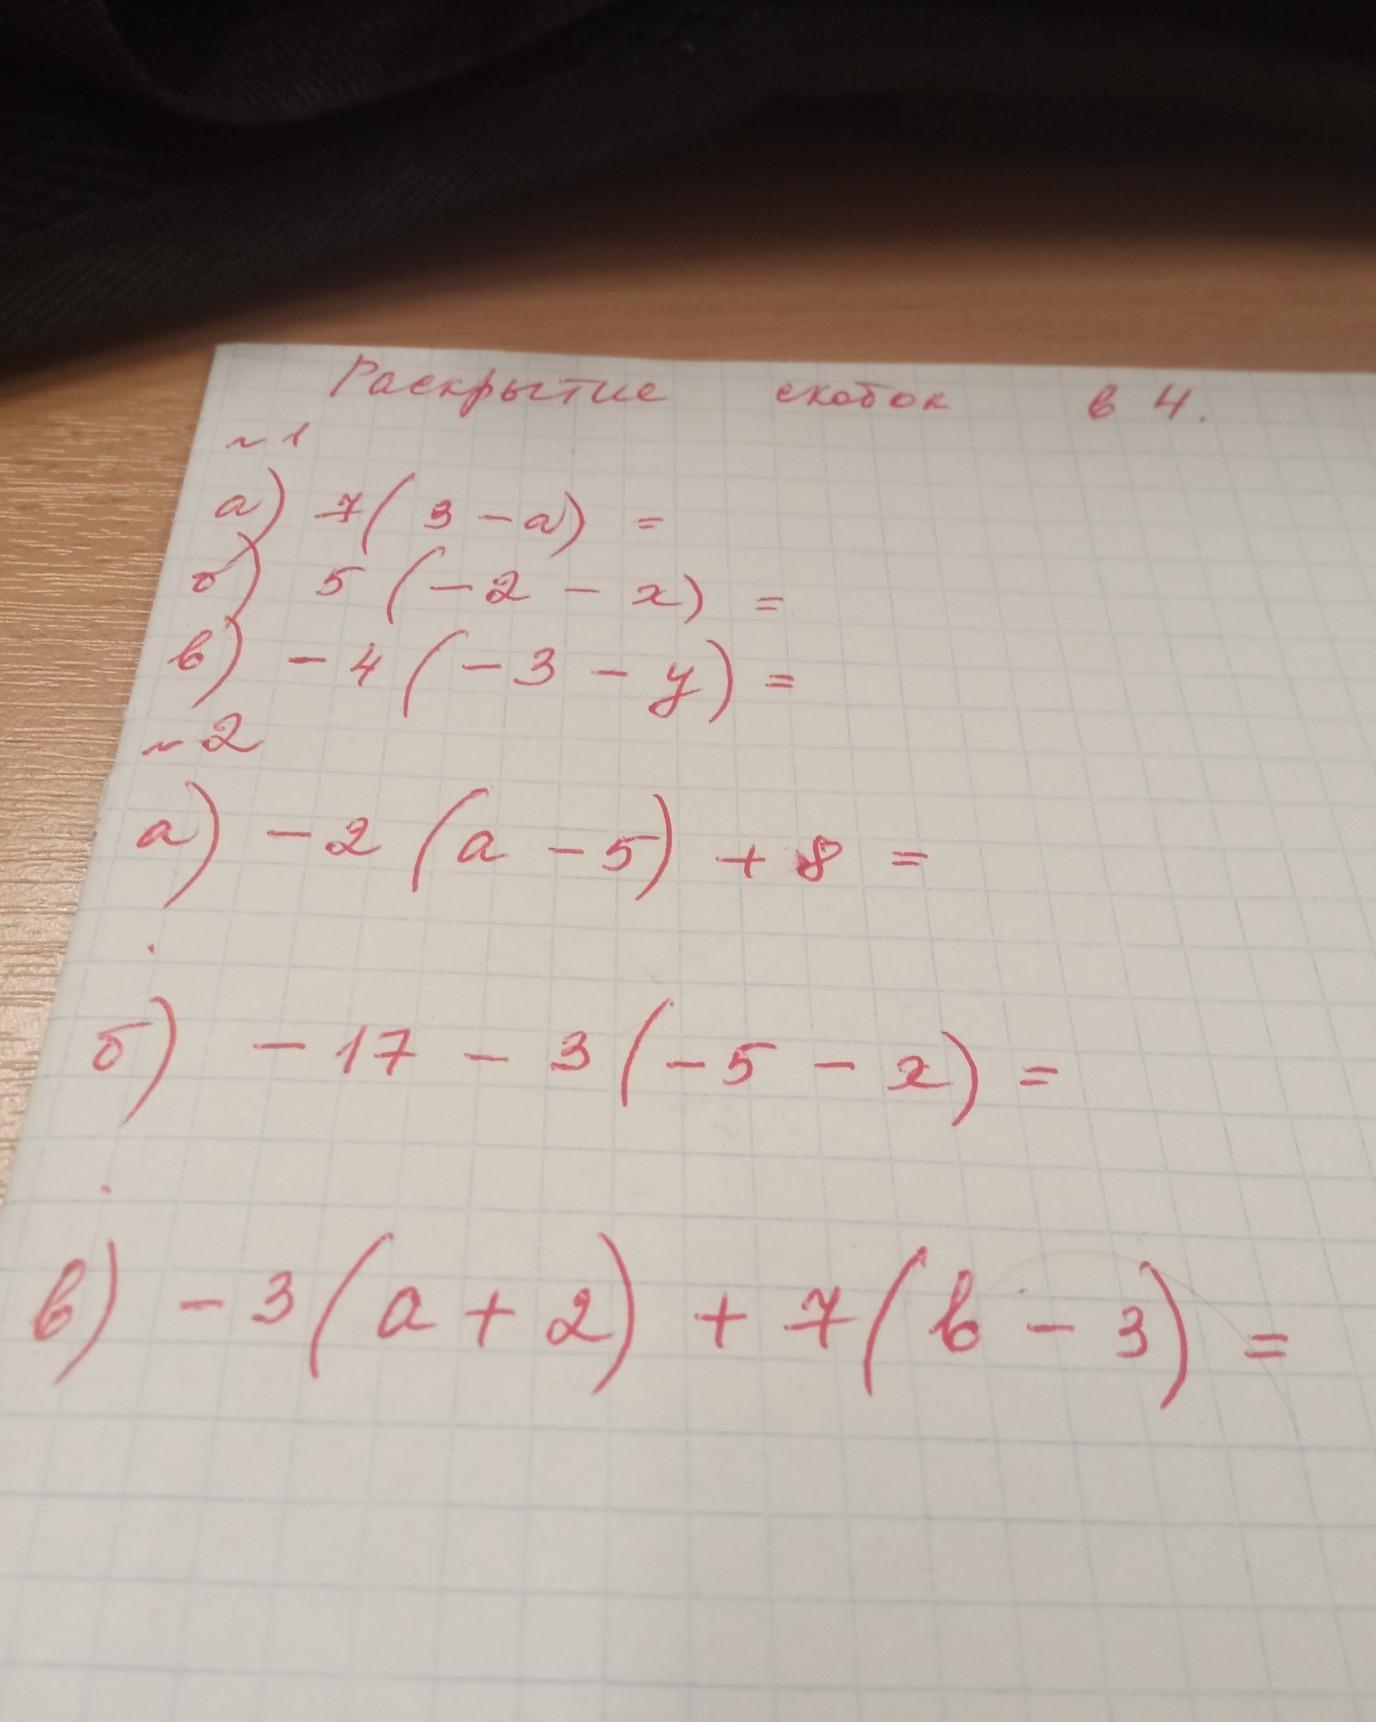 Раскрытие скобок в 4.
~1
а) 7(3-a) =
б) 5(-2-x) =
в) -4(-3-y) =
~2
а) -2(a-5) + 8 =
б) -17 - 3(-5-x) =
в) -3(a+2) + 7(b-3) =